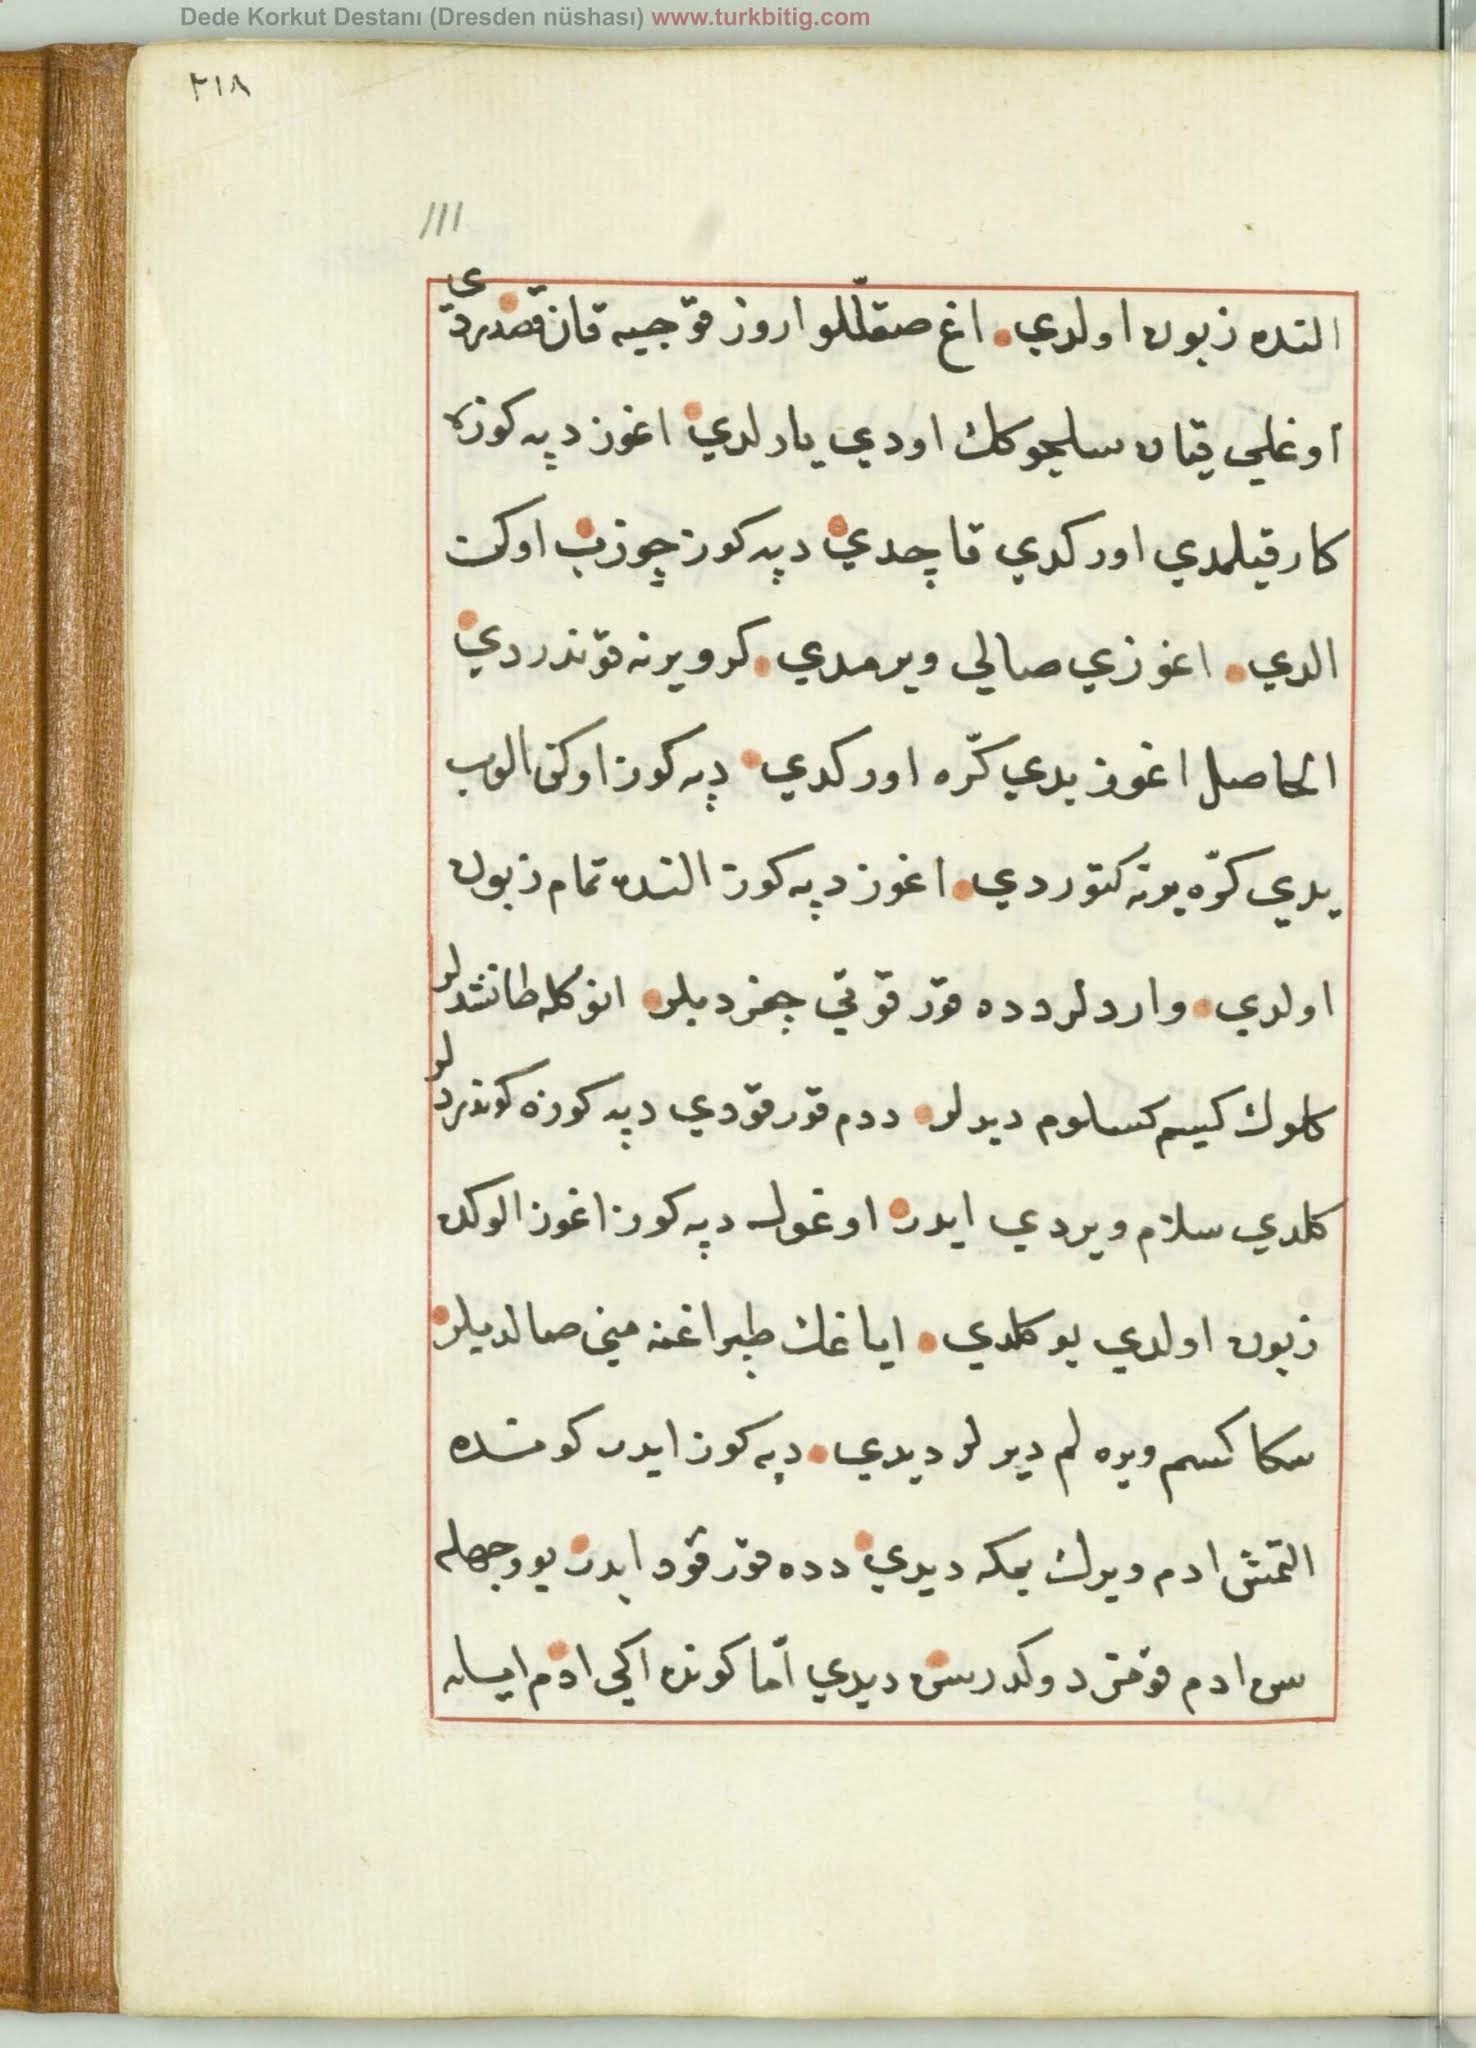 Dede Korkut Destanı (Dresden nüshası) www.turkbitig.com
٢١٨
111
النده زبون اولدي اغ صقاللّو اروز قوّجیه قان قصدردي
اوغلي قیان سلجوكك اودي یارلدي اغوز دپه كوزه
كار قیلمدي اوركدي قاچدي دپه كوز چوزب اوكن
الدي اغوزي صالي ویرمدي كرو یرنه قوندردي
الحاصل اغوز یدي كرّه اوركدي دپه كوز اوكن الوب
یدي كرّه یرنه كتوردي اغوز دپه كوز النده تمام زبون
اولدي واردلر دده قورقوتي چغردیلر انوكله طانشدلر
كلوك كیسم كسلوم دیدلر ددم قورقودي دپه كوزه كوندردلر
كلدي سلام ویردي ایدر اوغول دپه كوز اغوز الوكده
زبون اولدي بوكلدي ایاغك طپراغنه مني صالدیلر
سكا كسم ویره لم دیرلر دیدي دپه كوز ایدر كونده
التمش ادم ویرك یمكه دیدي دده قورقود ایدر بو وجهله
سن ادم قومز دوكدرسن دیدي امّا كونده اكي ادم ایله